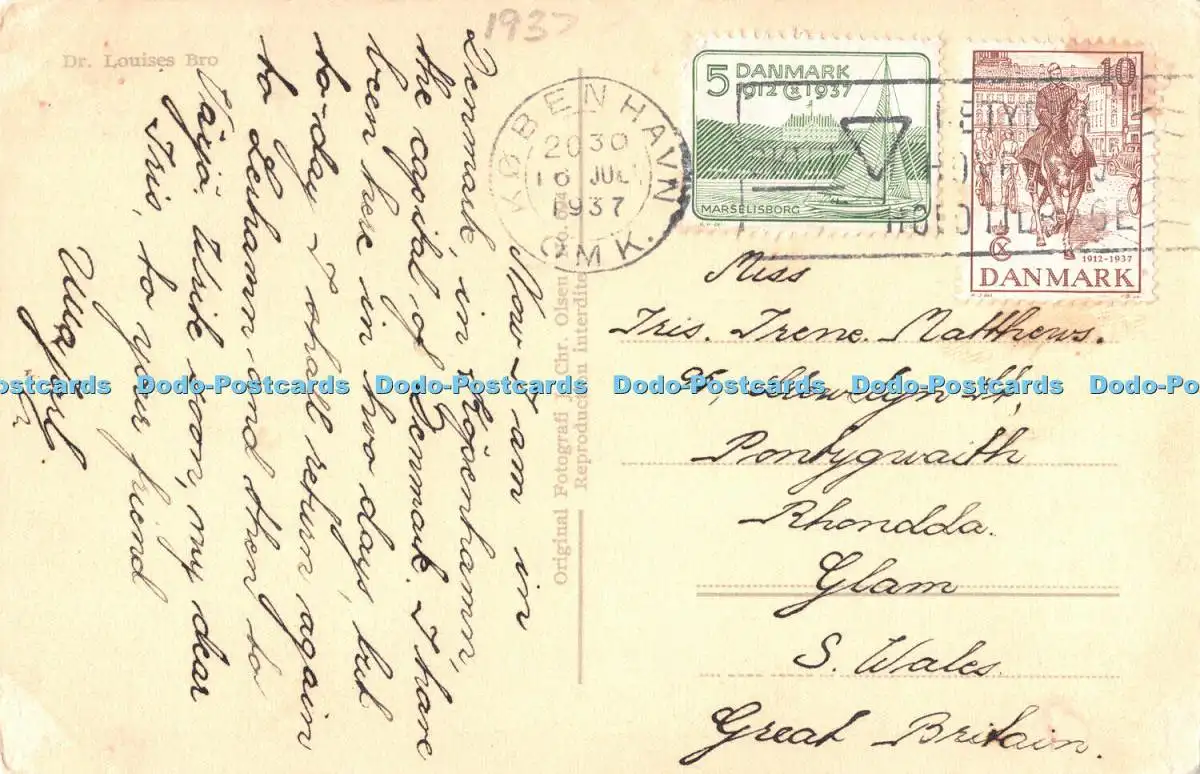 1937
Dr. Louises Bro
Now I am in
Denmark, in Köbenhamn,
the capital of Denmark. I have
been here in two days, but
to-day I shall return again
to Leuhamn and then to
Växjö. Write soon, my dear
Iris, to your friend
Original Fotografi J. Chr. Olsen
Reproduction interdite
KØBENHAVN
2030
16 JUL
1937
OMK.
5 DANMARK
1912 CX 1937
MARSELISBORG
10
CX
1912-1937
DANMARK
Miss
Iris. Irene. Matthews.
95, Llewelyn St,
Pontygwaith
Rhondda.
Glam
S. Wales.
Great Britain.
Postcards Dodo-Postcards Dodo-Postcards Dodo-Postcards Dodo-Postcards Dodo-Postcards